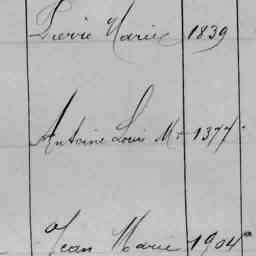 Pierre Marie 1839
Antoine Louis M. 1377
Jean Marie 1904